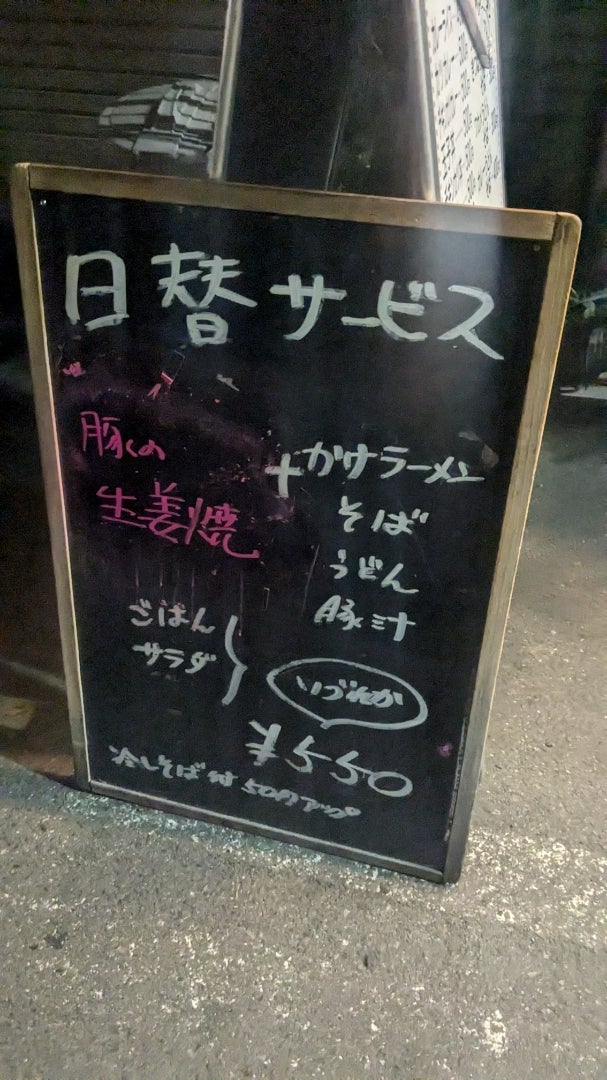 日替サービス
豚くの
生姜焼
+かけラーメン
そば
うどん
豚汁
ごはん
サラダ
いづれか
¥550
冷しそば付50円アップ